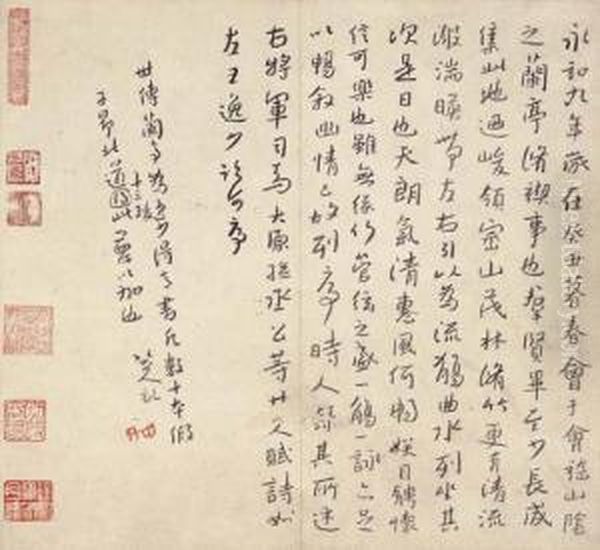 永和九年歲在癸丑暮春會于會稽山陰
之蘭亭脩禊事也羣賢畢至少長咸
集此地迺峻領崇山茂林脩竹更有清流
激湍暎帶左右引以為流觴曲水列坐其
次是日也天朗氣清惠風和暢娛目騁懷
信可樂也雖無絲竹管弦之盛一觴一詠亦足
以暢敘幽情已故列序時人錄其所述
右將軍司馬太原孫丞公等廿人賦詩如
左王逸少序
世傳蘭亭為逸少得意書凡數十本假
十三跋
子昂此道以加也